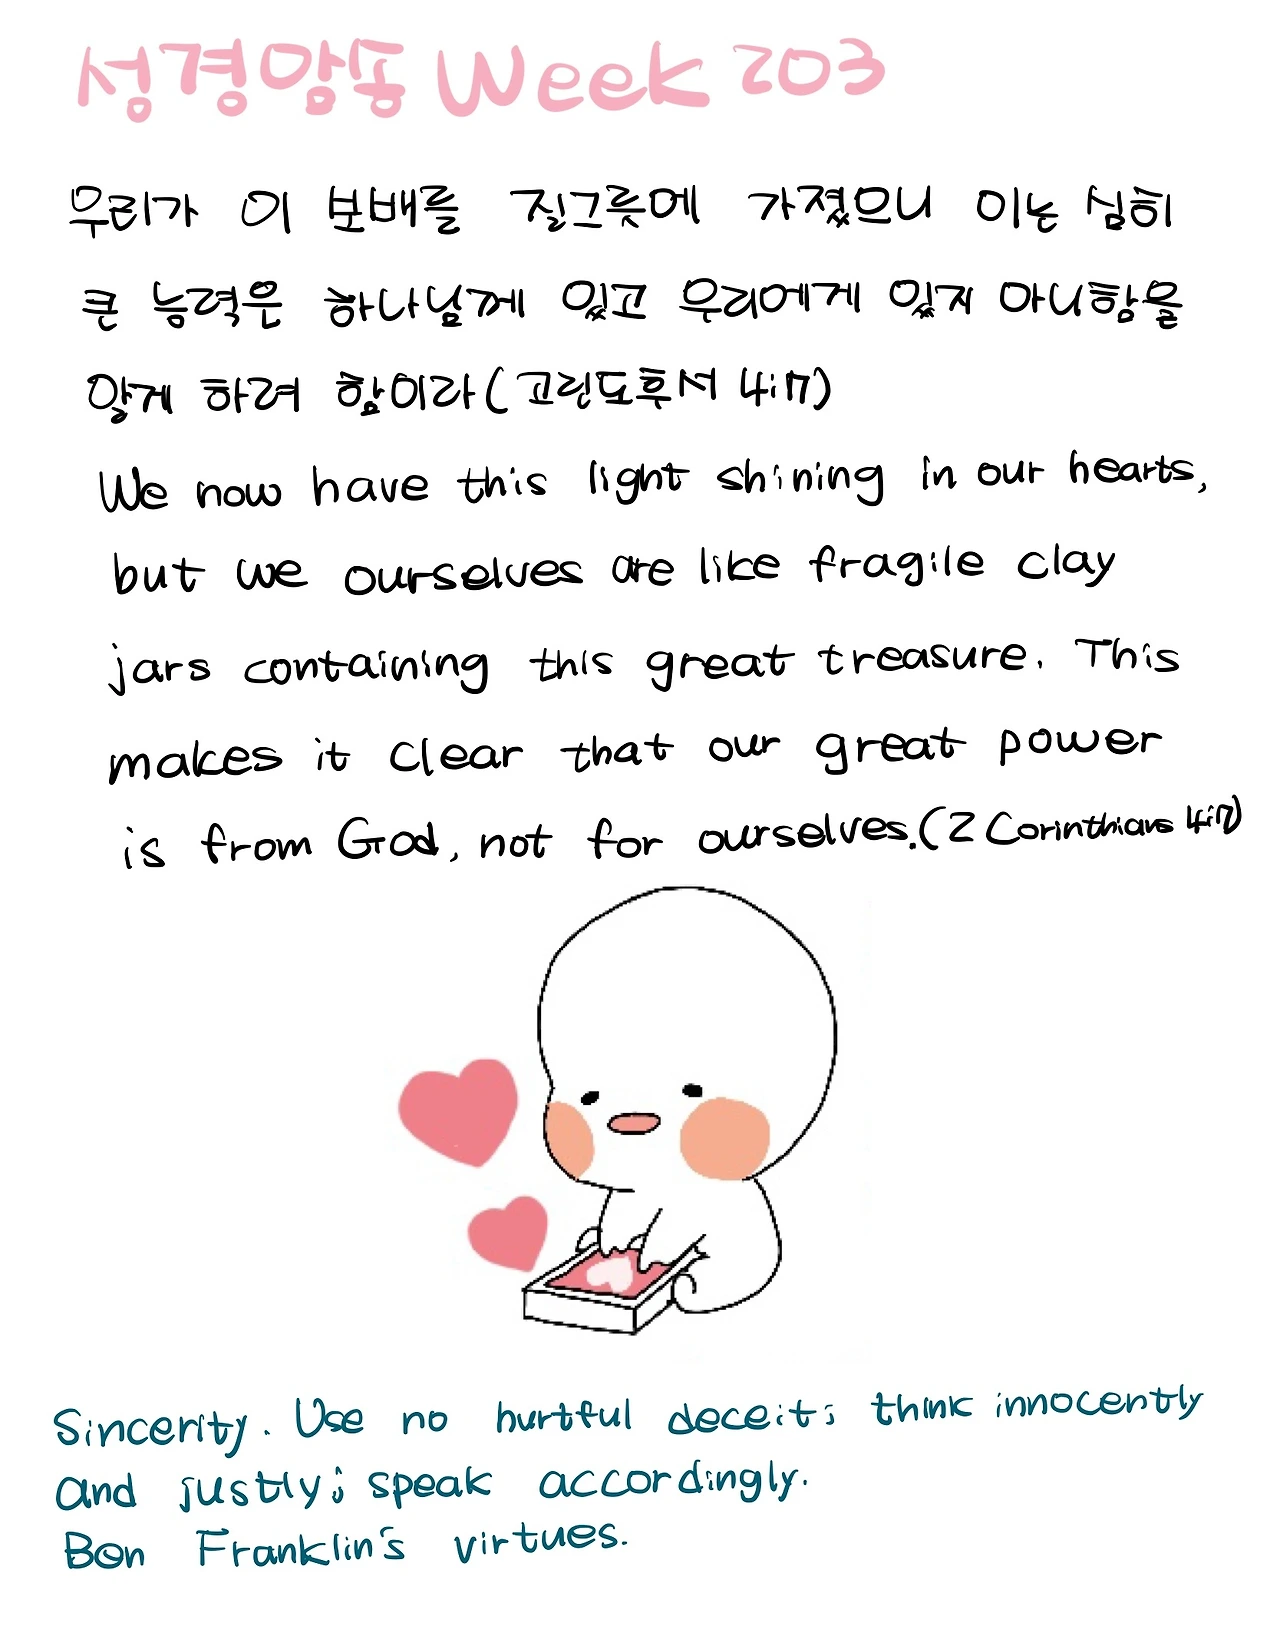 성경암송 Week 203
우리가 이 보배를 질그릇에 가졌으니 이는 심히
큰 능력은 하나님께 있고 우리에게 있지 아니함을
알게 하려 함이라(고린도후서 4:7)
We now have this light shining in our hearts,
but we ourselves are like fragile clay
jars containing this great treasure. This
makes it clear that our great power
is from God, not for ourselves.(2 Corinthians 4:7)
Sincerity. Use no hurtful deceit; think innocently
and justly; speak accordingly.
Ben Franklin's virtues.